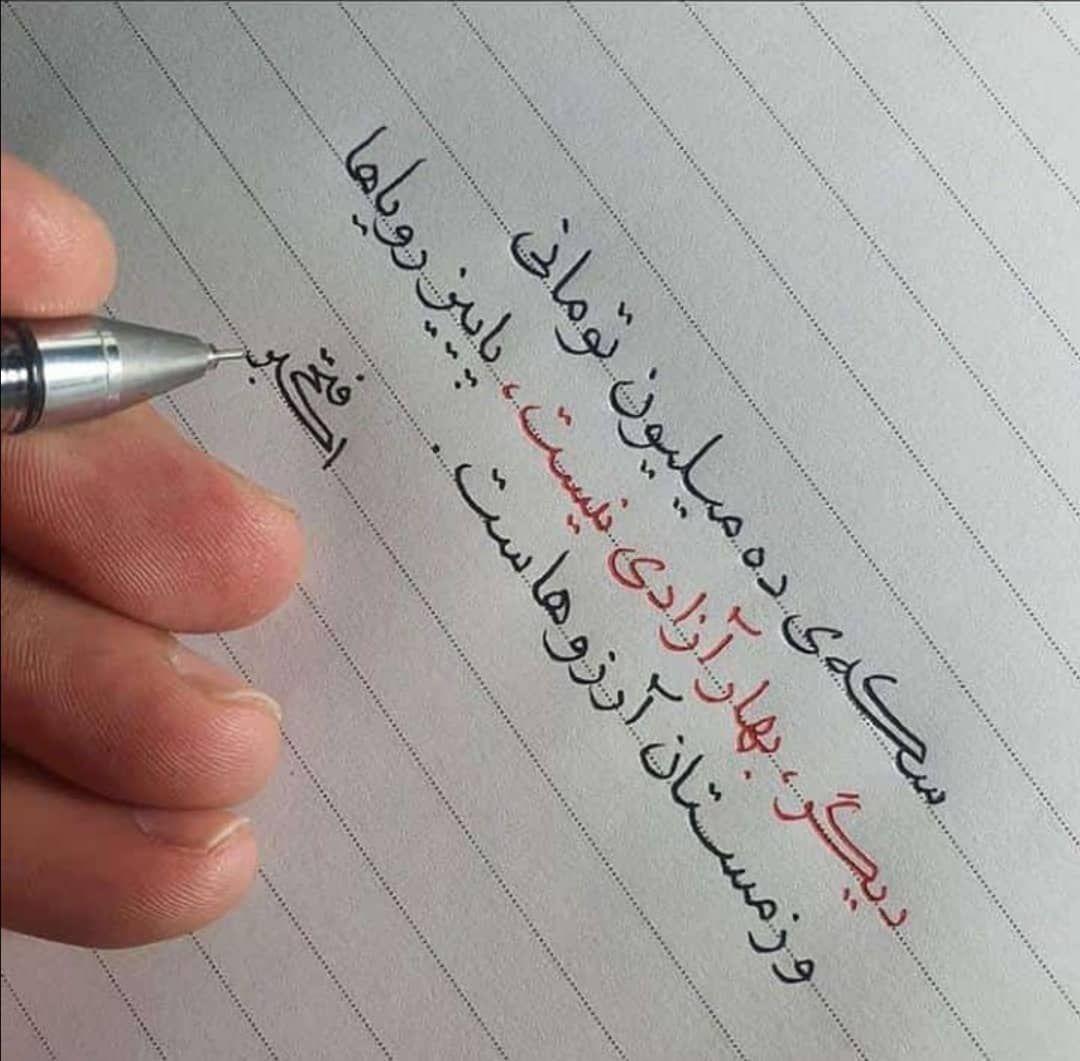 سکه‌ی ده میلیون تومانی
دیگر، بهار آزادی نیست، پاییز رویاها
و زمستان آرزوهاست.